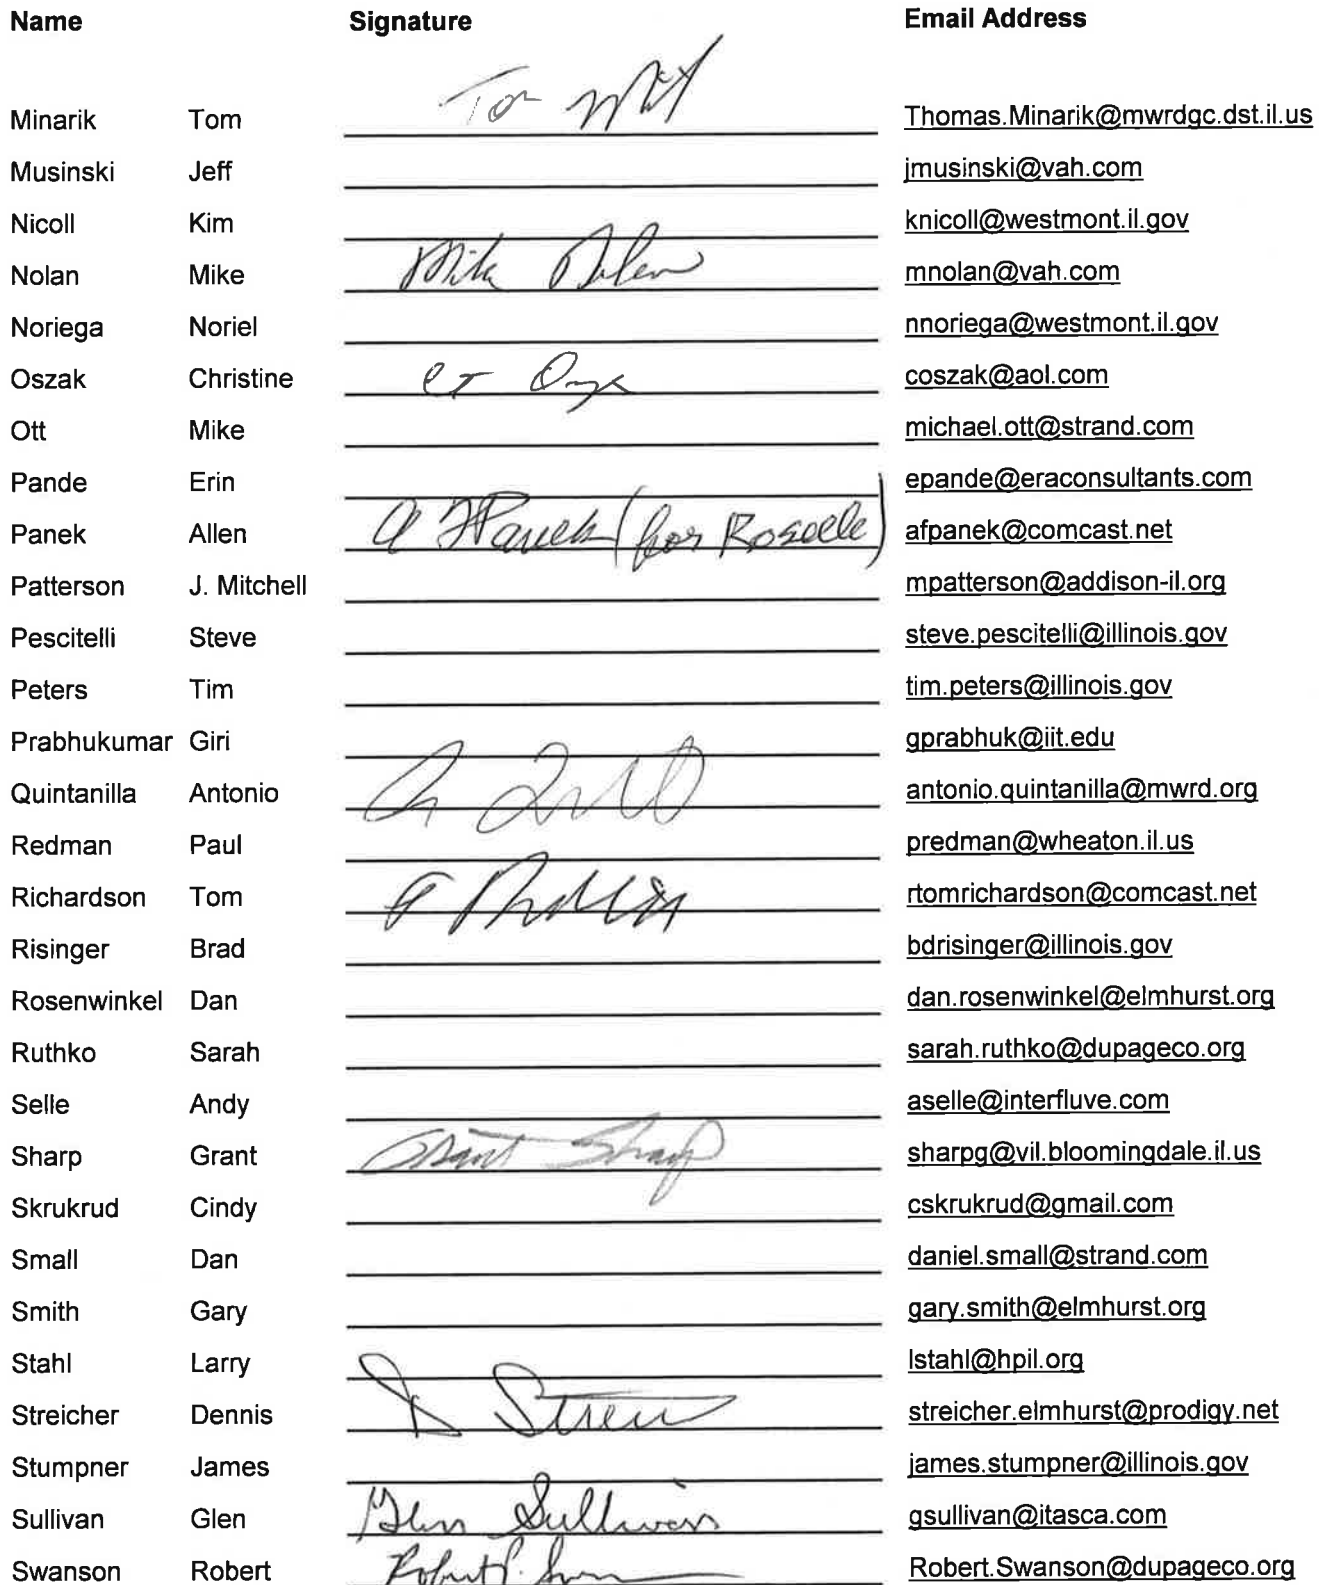 Name Signature Email Address
Minarik Tom Tom Thomas.Minarik@mwrdgc.dst.il.us
Musinski Jeff jmusinski@vah.com
Nicoll Kim knicoll@westmont.il.gov
Nolan Mike Mike Nolan mnolan@vah.com
Noriega Noriel nnoriega@westmont.il.gov
Oszak Christine coszak@aol.com
Ott Mike michael.ott@strand.com
Pande Erin epande@eraconsultants.com
Panek Allen A F Panek (for Roselle) afpanek@comcast.net
Patterson J. Mitchell mpatterson@addison-il.org
Pescitelli Steve steve.pescitelli@illinois.gov
Peters Tim tim.peters@illinois.gov
Prabhukumar Giri gprabhuk@iit.edu
Quintanilla Antonio antonio.quintanilla@mwrd.org
Redman Paul predman@wheaton.il.us
Richardson Tom rtomrichardson@comcast.net
Risinger Brad bdrisinger@illinois.gov
Rosenwinkel Dan dan.rosenwinkel@elmhurst.org
Ruthko Sarah sarah.ruthko@dupageco.org
Selle Andy aselle@interfluve.com
Sharp Grant Grant Sharp sharpg@vil.bloomingdale.il.us
Skrukrud Cindy cskrukrud@gmail.com
Small Dan daniel.small@strand.com
Smith Gary gary.smith@elmhurst.org
Stahl Larry lstahl@hpil.org
Streicher Dennis streicher.elmhurst@prodigy.net
Stumpner James james.stumpner@illinois.gov
Sullivan Glen Glen Sullivan gsullivan@itasca.com
Swanson Robert Robert Robert.Swanson@dupageco.org